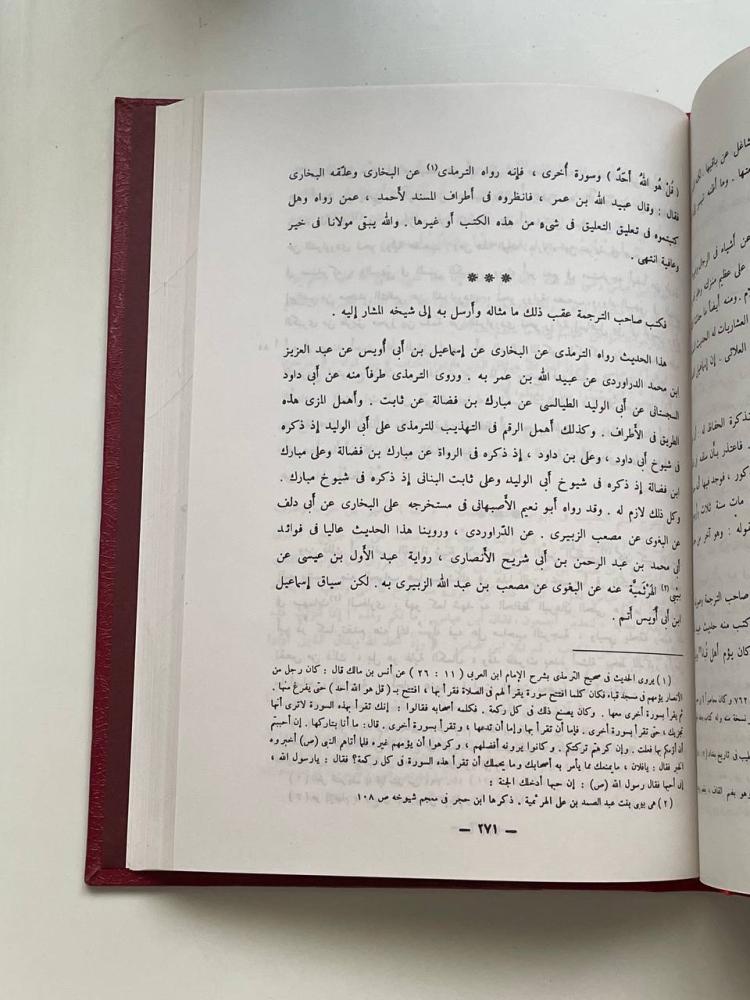 ( قُلْ هُو اللهُ أَحَدٌ ) وسورة أُخرى ، فإنه رواه الترمذى(١) عن البخارى وعلّقه البخارى
فقال : وقال عبيد الله بن عمر ، فانظروه فى أطراف المسند لأحمد ، عمن رواه وهل
كتبتموه فى تعليق التعليق فى شىء من هذه الكتب أو غيرها . والله يبقى مولانا فى خير
وعافية انتهى .
* * *
فكتب صاحب الترجمة عقب ذلك ما مثاله وأرسل به إلى شيخه المشار إليه .
هذا الحديث رواه الترمذى عن البخارى عن إسماعيل بن أبى أويس عن عبد العزيز
ابن محمد الدراوردى عن عبيد الله بن عمر به . وروى الترمذى طرفاً منه عن أبى داود
السجستانى عن أبى الوليد الطيالسى عن مبارك بن فضالة عن ثابت . وأهمل المزى هذه
الطريق فى الأطراف . وكذلك أهمل الرقم فى التهذيب للترمذى على أبى الوليد إذ ذكره
فى شيوخ أبى داود ، وعلى بن داود ، إذ ذكره فى الرواة عن مبارك بن فضالة وعلى مبارك
ابن فضالة إذ ذكره فى شيوخ أبى الوليد ، وعلى ثابت البنانى إذ ذكره فى شيوخ مبارك .
وكل ذلك لازم له . وقد رواه أبو نعيم الأصبهانى فى مستخرجه على البخارى عن أبى دلف
عن البغوى عن مصعب الزبيرى . عن الدّراوردى ، وروينا هذا الحديث عاليا فى فوائد
أبى محمد بن عبد الرحمن بن أبى شريح الأنصارى ، رواية عبد الأول بن عيسى عن
بيبى(٢) الهرْثميَّة عنه عن البغوى عن مصعب بن عبد الله الزبيرى به . لكن سياق إسماعيل
ابن أبى أُويس أتم .
(١) يروى الحديث فى صحيح الترمذى بشرح الإمام ابن العربى (١١ : ٢٦) عن أنس بن مالك قال : كان رجل من
الأنصار يؤمهم فى مسجد قباء فكان كلما افتتح سورة يقرأ لهم فى الصلاة فقرأ بها ، افتتح بـ ( قل هو الله أحد ) حتى يفرغ منها .
ثم يقرأ بسورة أخرى معها . وكان يصنع ذلك فى كل ركعة . فكلمه أصحابه فقالوا : إنك تقرأ بهذه السورة لاترى أنها
تجزيك ، حتى تقرأ بسورة أخرى . فإما أن تقرأ بها وإما أن تدعها ، وتقرأ بسورة أخرى . قال : ما أنا بتاركها . إن أحببتم
أن أؤمكم بها فعلت . وإن كرهتم تركتكم . وكانوا يرونه أفضلهم ، وكرهوا أن يؤمهم غيره فلما أتاهم النبى (ص) أخبروه
الخبر فقال : يافلان ، مايمنعك مما يأمر به أصحابك وما يحملك أن تقرأ هذه السورة فى كل ركعة؟ فقال : يارسول الله ،
إنى أحبها فقال رسول الله (ص) : إن حبها أدخلك الجنة :
(٢) هى بيبى بنت عبد الصمد بن على الهرثمية . ذكرها ابن حجر فى معجم شيوخه ص ١٠٨
— ٢٧١ —